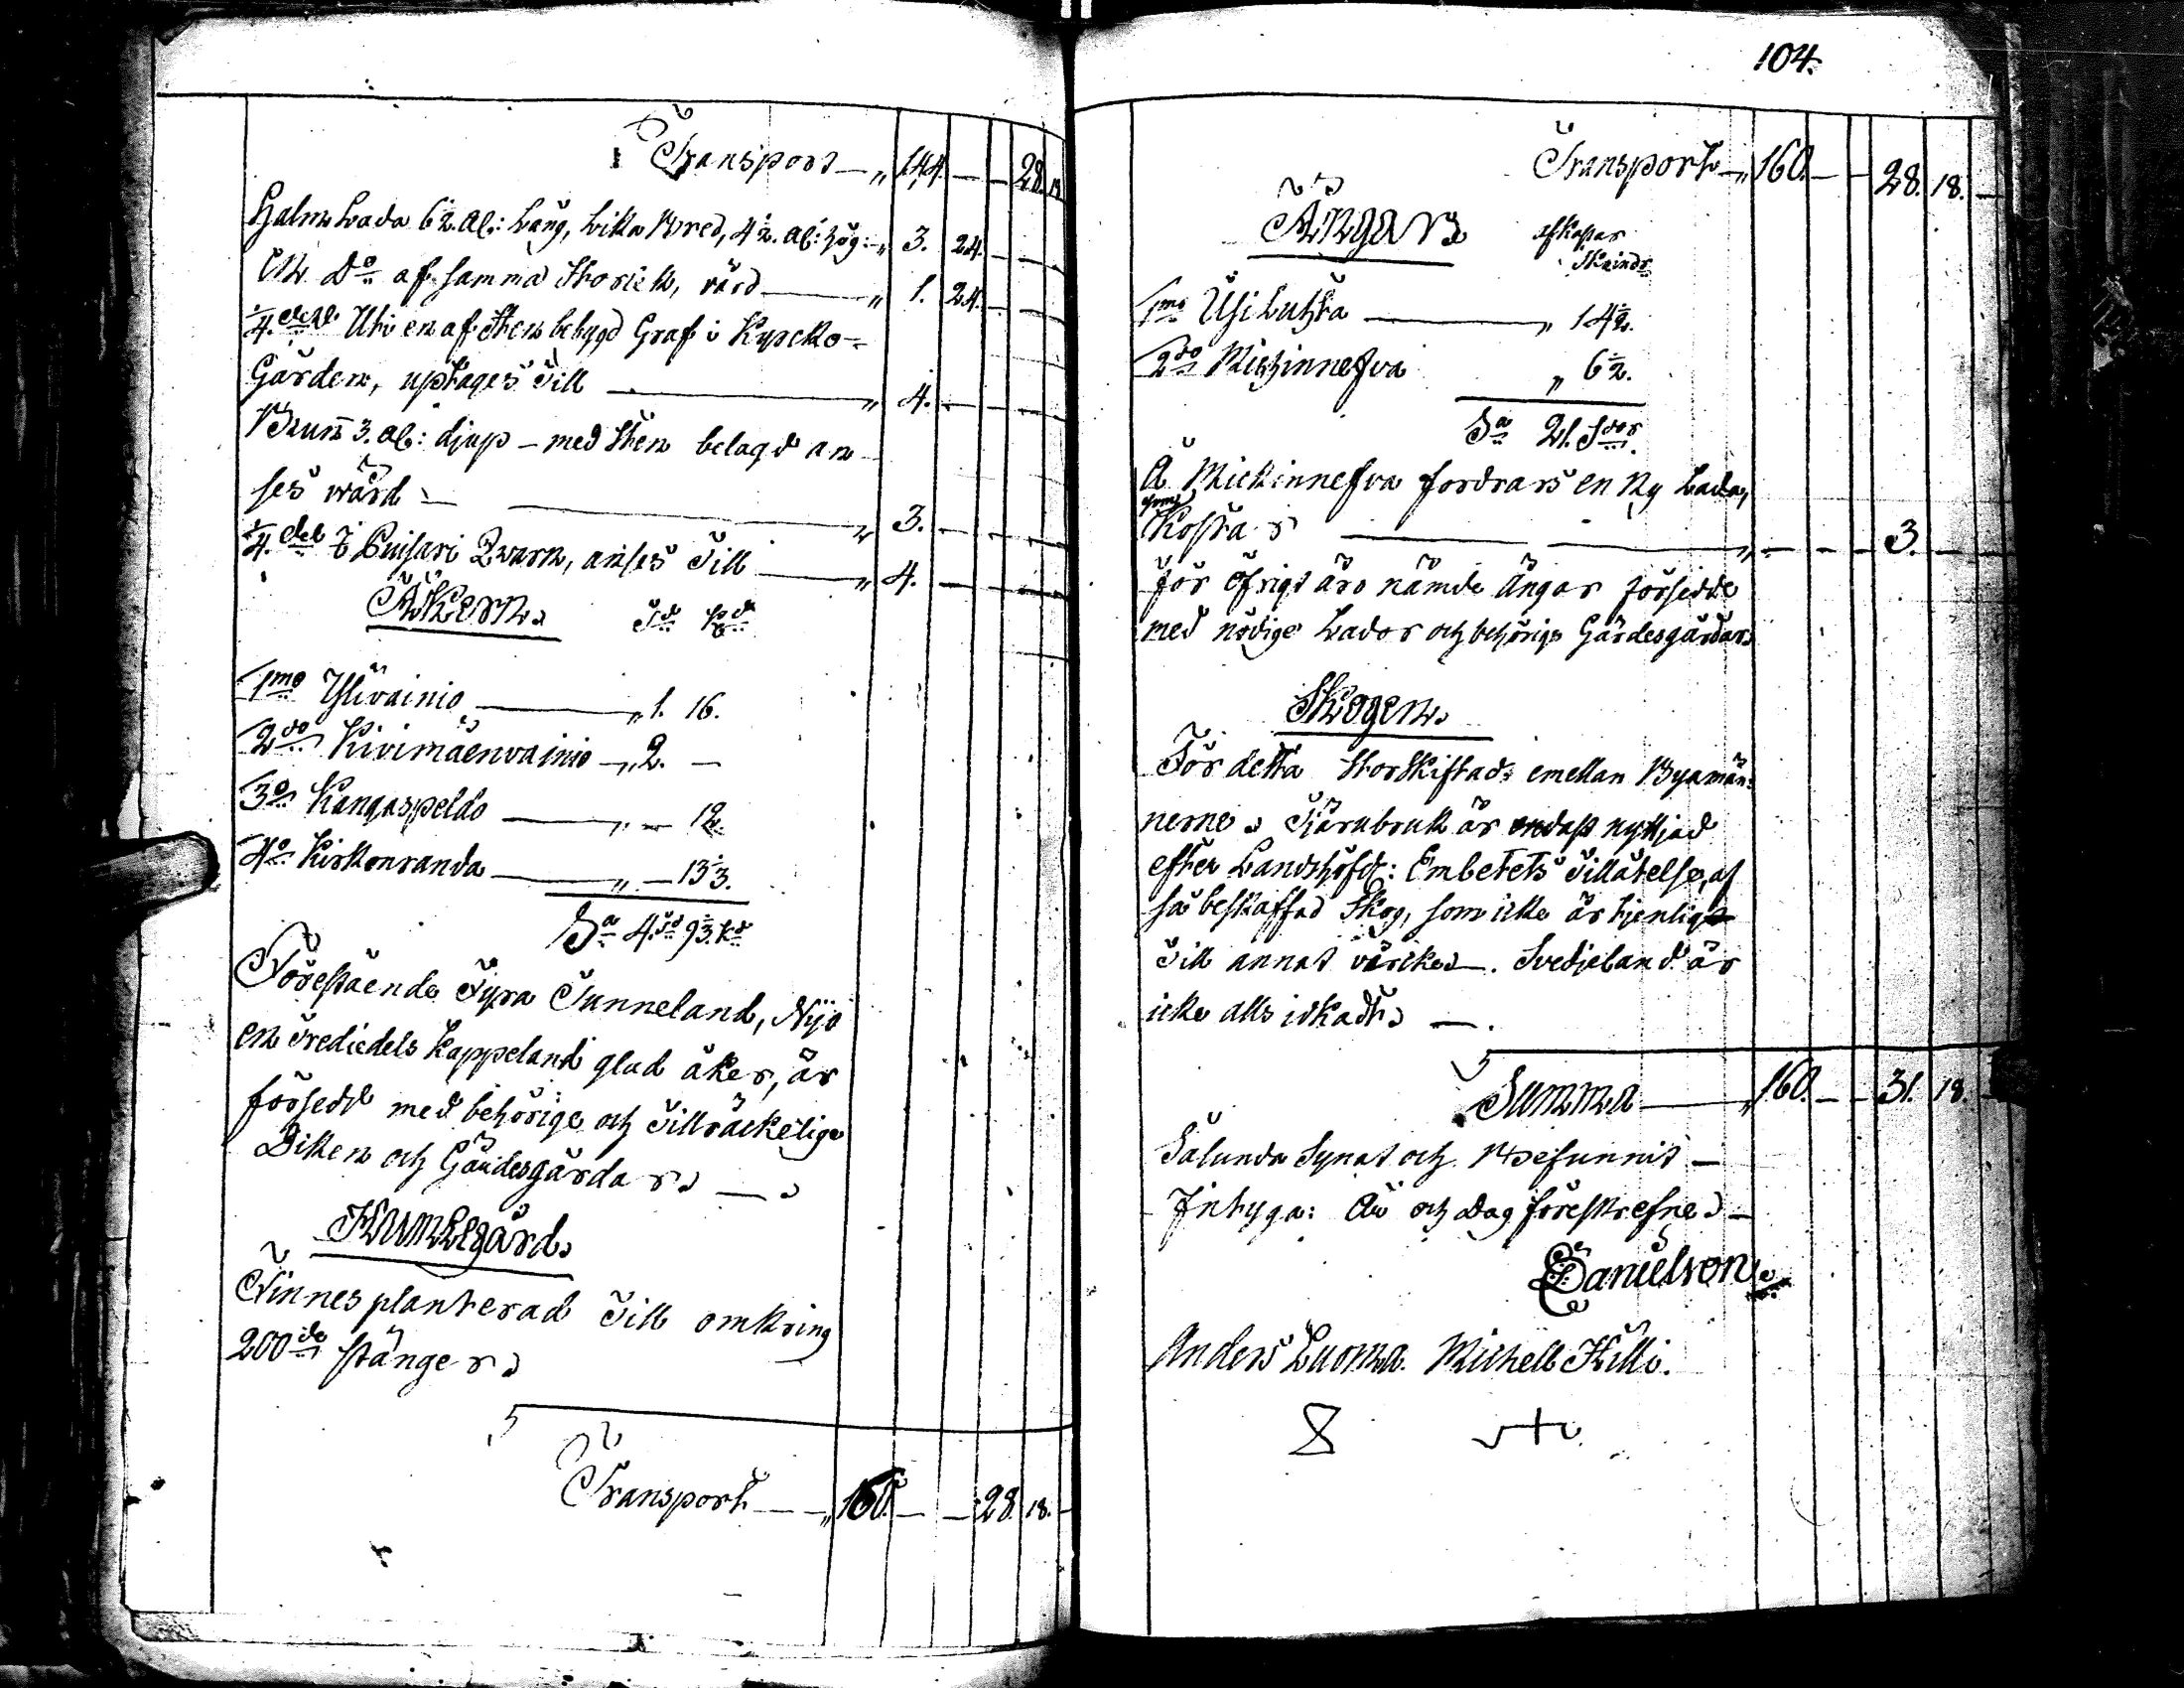 Transport — „ 144. — — 28. 18.
Halm Lada 6½. al: Lång, lika Bred, 4½. al: hög: „ 3. 24. —
En do af samma Storlek, värd — „ 1. 24. —
¼. dehl Uti en af Sten bebygd Graf i Kyrcko-
Gården, uptages Till — „ 4. — —
Brunn 3. al: djup – med Sten belagd an-
ses wärd — „ 3. — —
¼. del i Qwarn, anses Till — „ 4. — —
Åkern Td Kd
1mo Ylivainio — „ 1. 16.
2do Kivimäenvainio — „ 2. —
3o Kangaspeldo — „ — 12.
4o Kirkonranda — „ — 13⅓.
Sa 4. Td 9⅓. Kd
Förestående Fyra Tunneland, Nijo
en Trediedels Kappeland glad åker, är
försedd med behörige och Tillräckelige
Diken och Gärdesgårdar —
Humblegård
Finnes planterad Till omkring
200de stänger
Transport — „ 160. — — 28. 18. —
104.
Transport — „ 160. — — 28. 18. —
Ängar afkastar
Skrindor
1mo — „ 14½.
2do Mickinnefva „ 6½.
Sa 21. Sdor
Å Mickinnefva fordrars en Ny Lada,
som
Kostar — „ — — — 3. —
för öfrigt äro nämde Ängar försedde
med nödige Lador och behörige Gärdesgårdar
Skogen
För detta Storskiftad emellan Byamän-
nerne. Tjärubruk är endast nyttjad
efter Landshöfd: Embetets Tillåtelse, af
så beskaffad Skog, som icke är tjenlig
Till annat värcke —. Svedjeland är
icke alls idkadt —.
Summa — „ 160. — — 31. 18. —
Sålunda Synat och Befunnit —
Intyga: År och Dag förestrefne —
Danielson
Anders Luoma. Michell Killi.